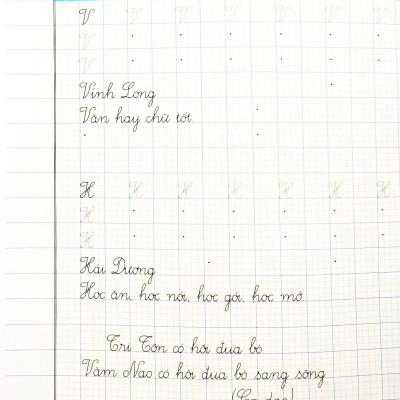 V V V V V V V
V
V
Vĩnh Long
Văn hay chữ tốt.
H H H H H H H
H
H
Hải Dương
Học ăn, học nói, học gói, học mở.
Tri Tôn có hội đua bò
Vàm Nao có hội đua bò sang sông
(Ca dao)